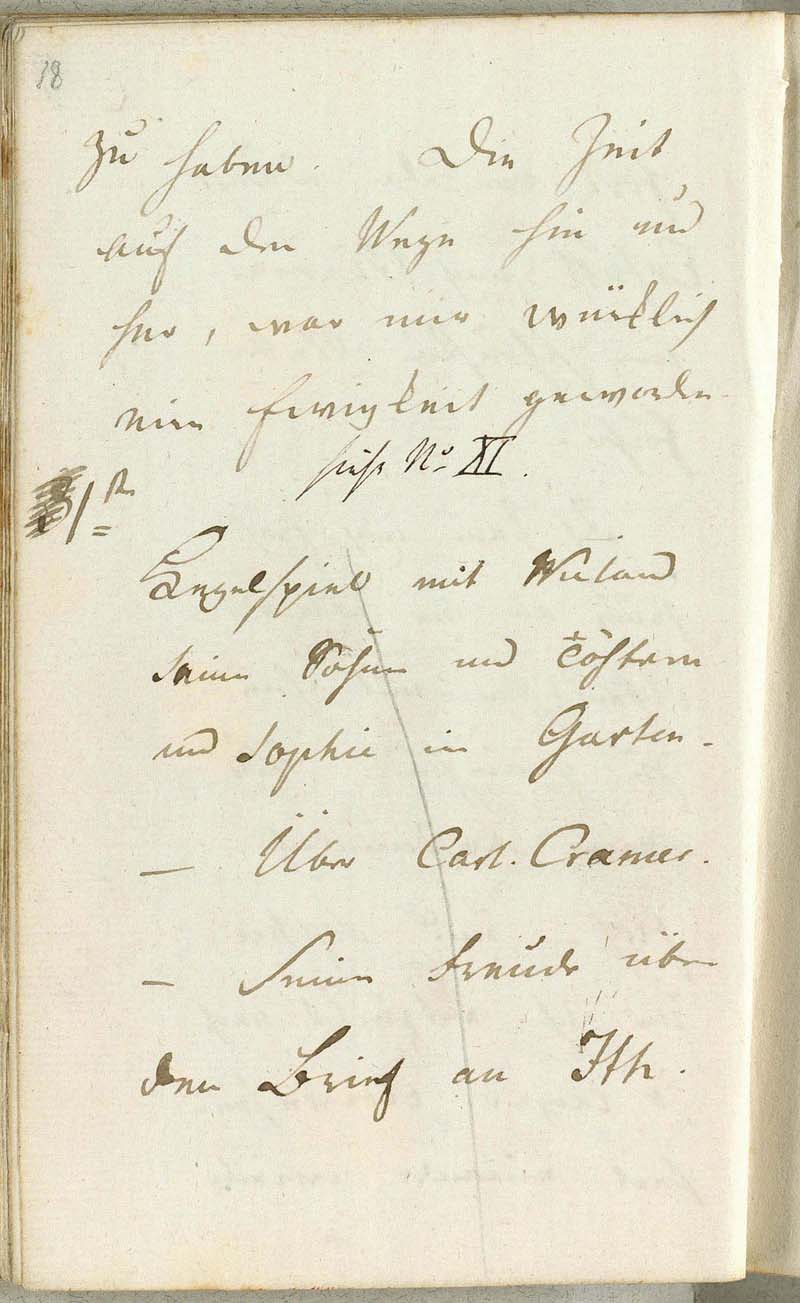 18
zu haben. Die Zeit
auf den Wege hin und
her, war mir würklich
eine Ewigkeit geworden.
siehe No XI.
31st
Kegelspiel mit Wieland
seinen Söhnen und Töchtern
und Sophie im Garten.
— Über Carl. Cramer.
— Seine Freude über
den Brief an Ith.